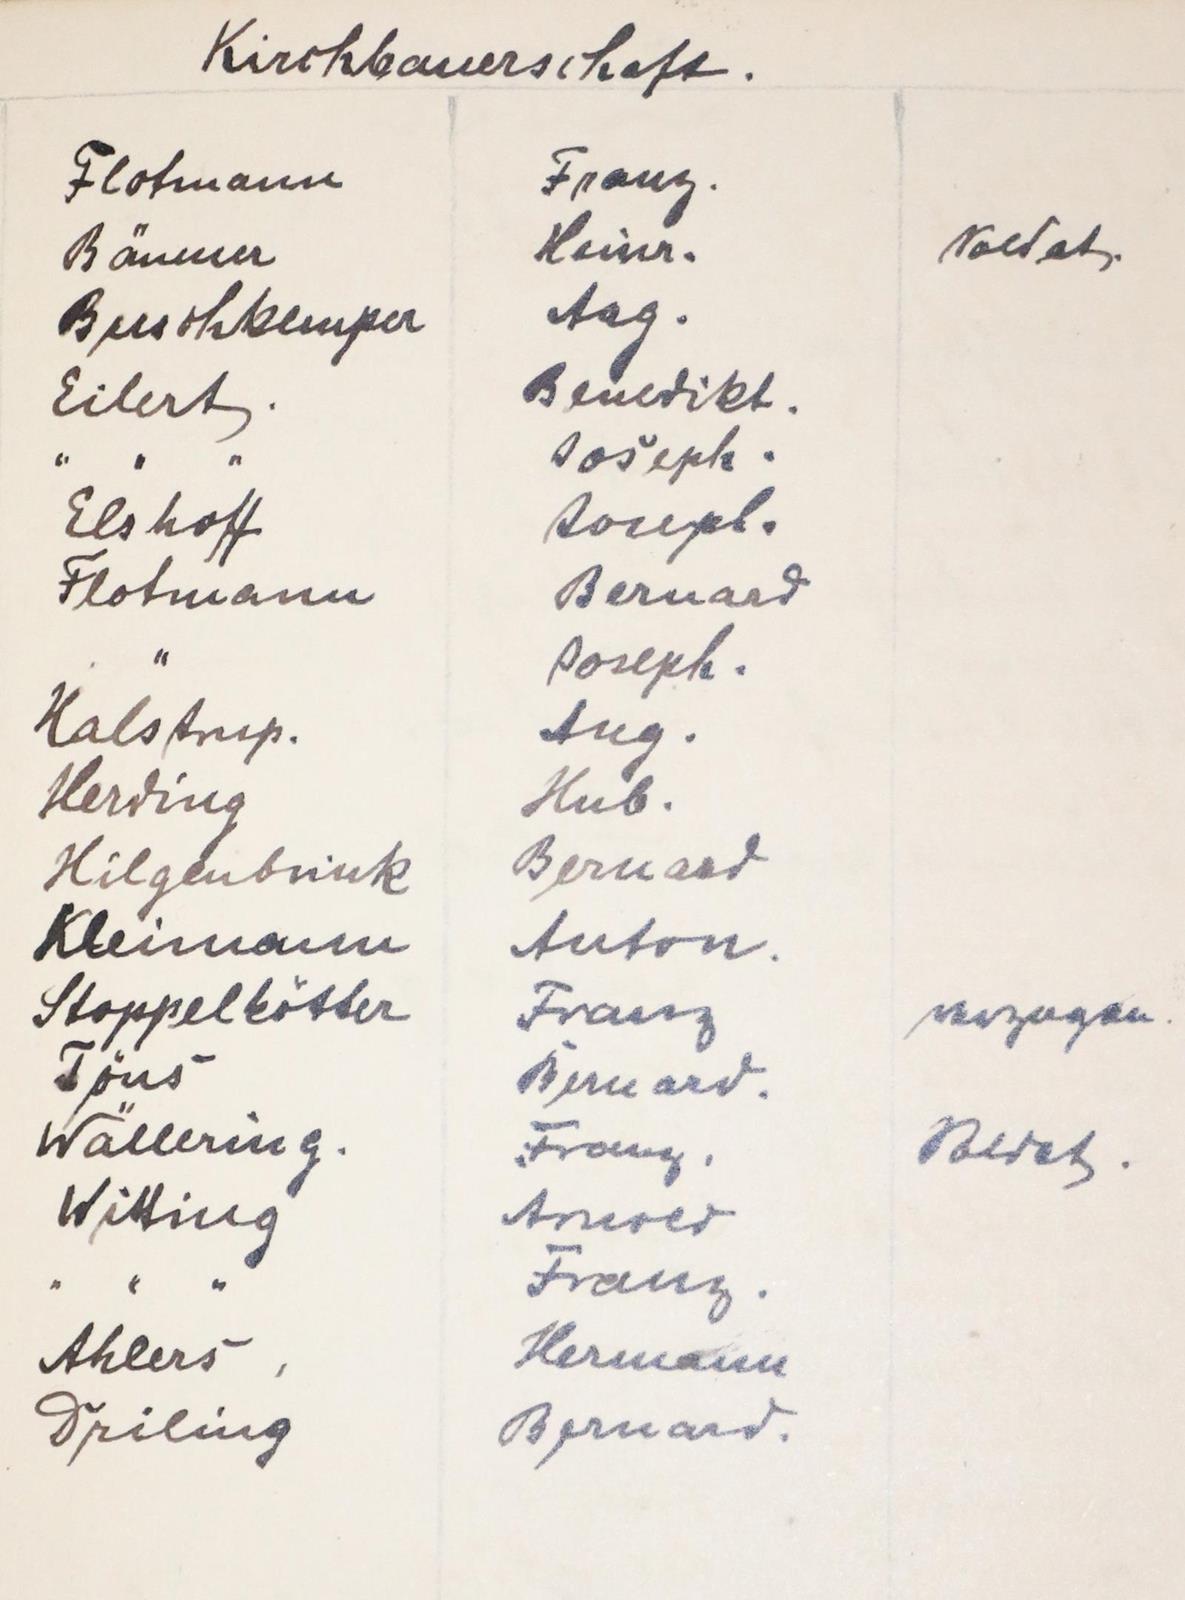 Kirchbauerschaft.
Flotmann Franz.
Bäumer Heinr. Soldat.
Buschkemper Aug.
Eilert. Benedikt.
" " " Joseph.
Elshoff Joseph.
Flotmann Bernard
" Joseph.
Halstrup. Aug.
Herding Hub.
Hilgenbrink Bernard
Kleimann Anton.
Stoppelkötter Franz verzogen.
Töns Bernard.
Wällering. Franz. Soldat.
Witting Arnold
" " " Franz.
Ahlers, Hermann
Driling Bernard.